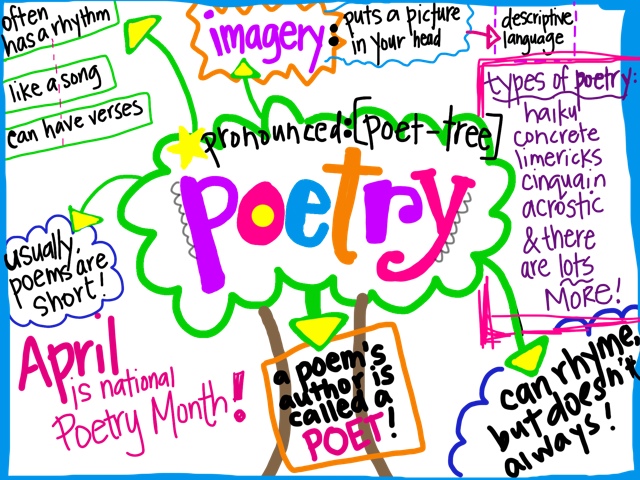 often
has a rhythm
like a song
can have verses
imagery:
puts a picture
in your head
descriptive
language
types of poetry:
haiku
concrete
limericks
cinquain
acrostic
& there
are lots
MORE!
pronounced: [poet-tree]
poetry
usually,
poems are
short!
April
is national
Poetry Month!
a poem's
author is
called a
POET!
can rhyme,
but doesn't
always!